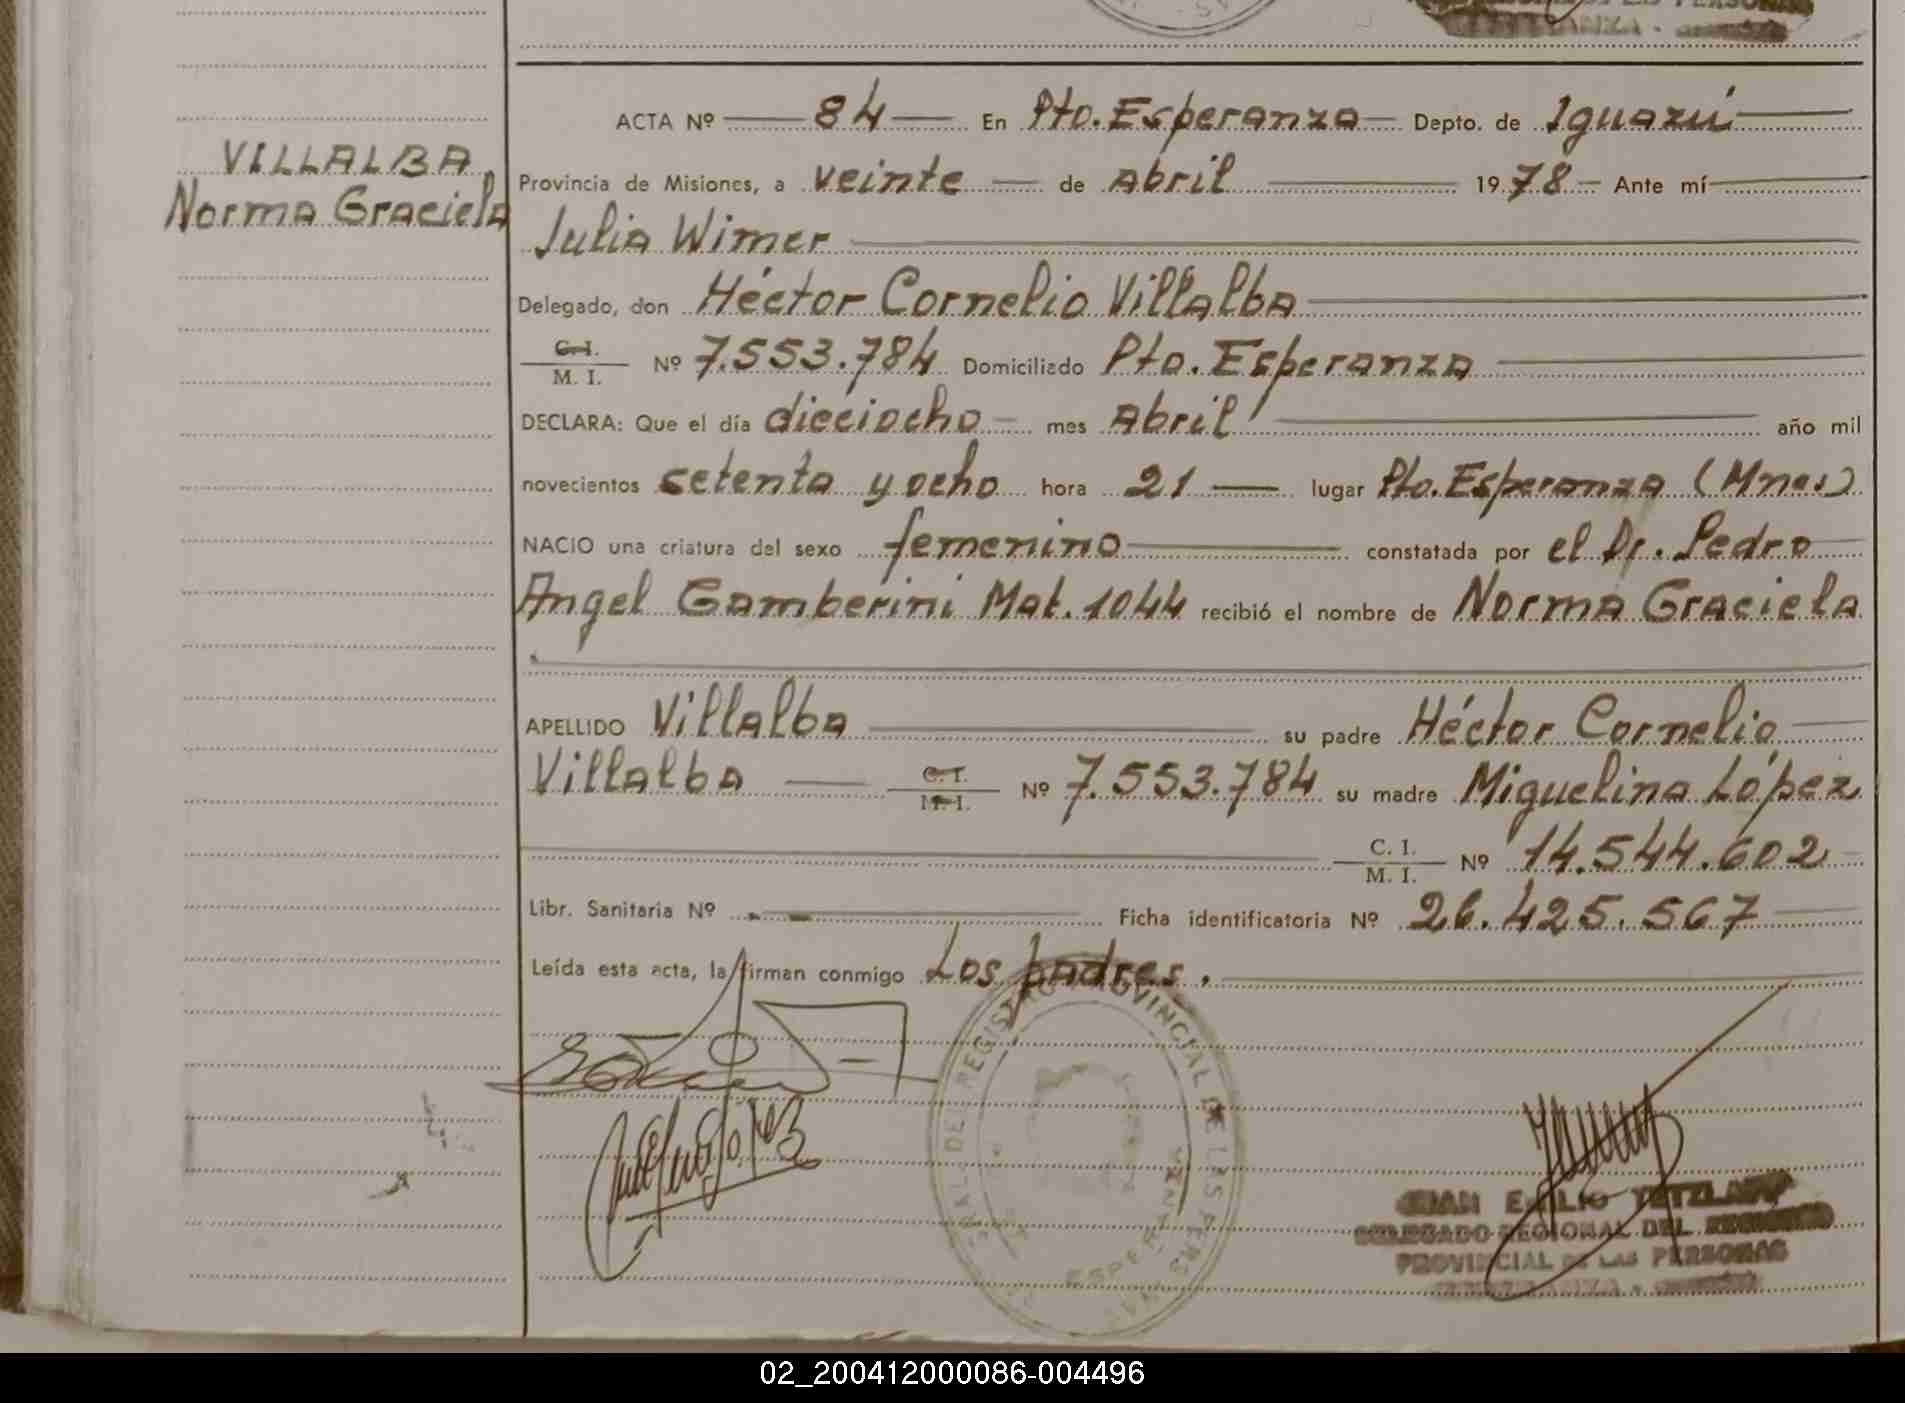 VILLALBA
Norma Graciela
ACTA Nº 84 En Pto. Esperanza Depto. de Iguazú
Provincia de Misiones, a veinte de Abril 1978 Ante mí
Julia Wimer
Delegado, don Héctor Cornelio Villalba
C. I.
M. I. Nº 7.553.784 Domiciliado Pto. Esperanza
DECLARA: Que el día dieciocho mes Abril año mil
novecientos setenta y ocho hora 21 lugar Pto. Esperanza (Mnes)
NACIO una criatura del sexo femenino constatada por el Dr. Pedro
Angel Gamberini Mat. 1044 recibió el nombre de Norma Graciela
APELLIDO Villalba su padre Héctor Cornelio
Villalba C. I.
M. I. Nº 7.553.784 su madre Miguelina López
C. I.
M. I. Nº 14.544.602
Libr. Sanitaria Nº Ficha identificatoria Nº 26.425.567
Leída esta acta, la firman conmigo Los padres.
REGISTRO PROVINCIAL DE LAS PERSONAS
ESPERANZA
JUAN EMILIO TETZLAFF
DELEGADO REGIONAL DEL REGISTRO
PROVINCIAL DE LAS PERSONAS
02_200412000086-004496